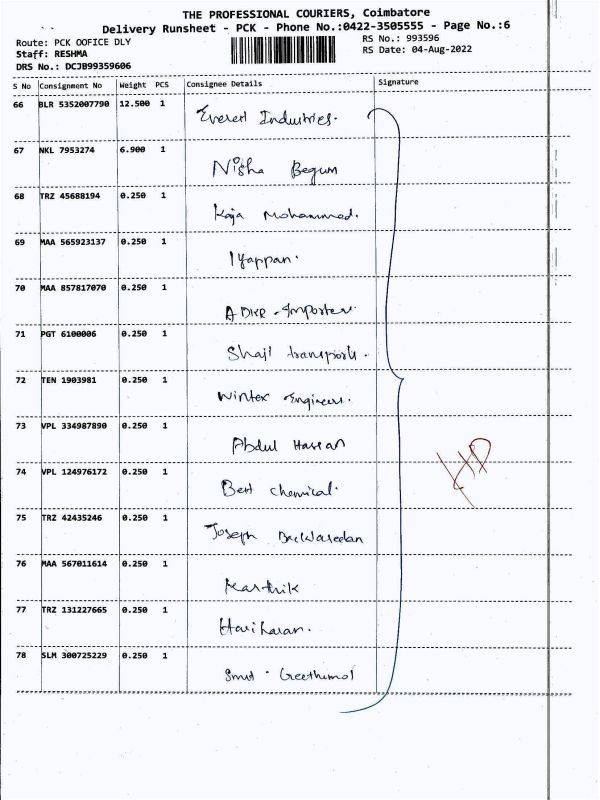 THE PROFESSIONAL COURIERS, Coimbatore
Delivery Runsheet - PCK - Phone No.:0422-3505555 - Page No.:6
Route: PCK OOFICE DLY RS No.: 993596
Staff: RESHMA RS Date: 04-Aug-2022
DRS No.: DCJB99359606
S No Consignment No Weight PCS Consignee Details Signature
66 BLR 5352007790 12.500 1 Everest Industries.
67 NKL 7953274 6.900 1 Nisha Begum
68 TRZ 45688194 0.250 1 Kaja Mohammed.
69 MAA 565923137 0.250 1 Iyappan.
70 MAA 857817070 0.250 1 ADKR
71 PGT 6100006 0.250 1 Shaji transports.
72 TEN 1903981 0.250 1 Wintex Engineers.
73 VPL 334987890 0.250 1 Abdul Hassan
74 VPL 124976172 0.250 1 Best chemical.
75 TRZ 42435246 0.250 1 Joseph
76 MAA 567011614 0.250 1 Karthik
77 TRZ 131227665 0.250 1 Hariharan.
78 SLM 300725229 0.250 1 Smt. Geethumol